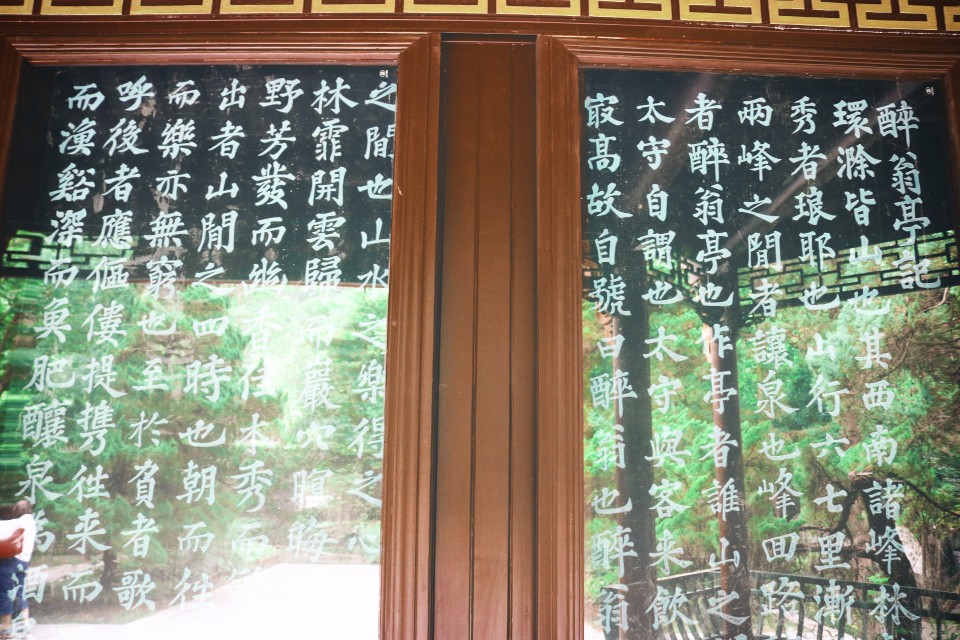 醉翁亭記
環滁皆山也其西南諸峰林
秀者琅耶也山行六七里漸
兩峰之間者讓泉也峰回路
者醉翁亭也作亭者誰山之
太守自謂也太守與客来飲
㝡高故自號曰醉翁也醉翁
之間也山水之樂得之心
林霏開雲歸而巖穴暝晦
野芳發而幽香佳木秀而
出者山間之四時也朝而徃
而樂亦無窮也至於負者歌
呼後者應傴僂提攜徃来而
而漁谿深而魚肥釀泉為酒